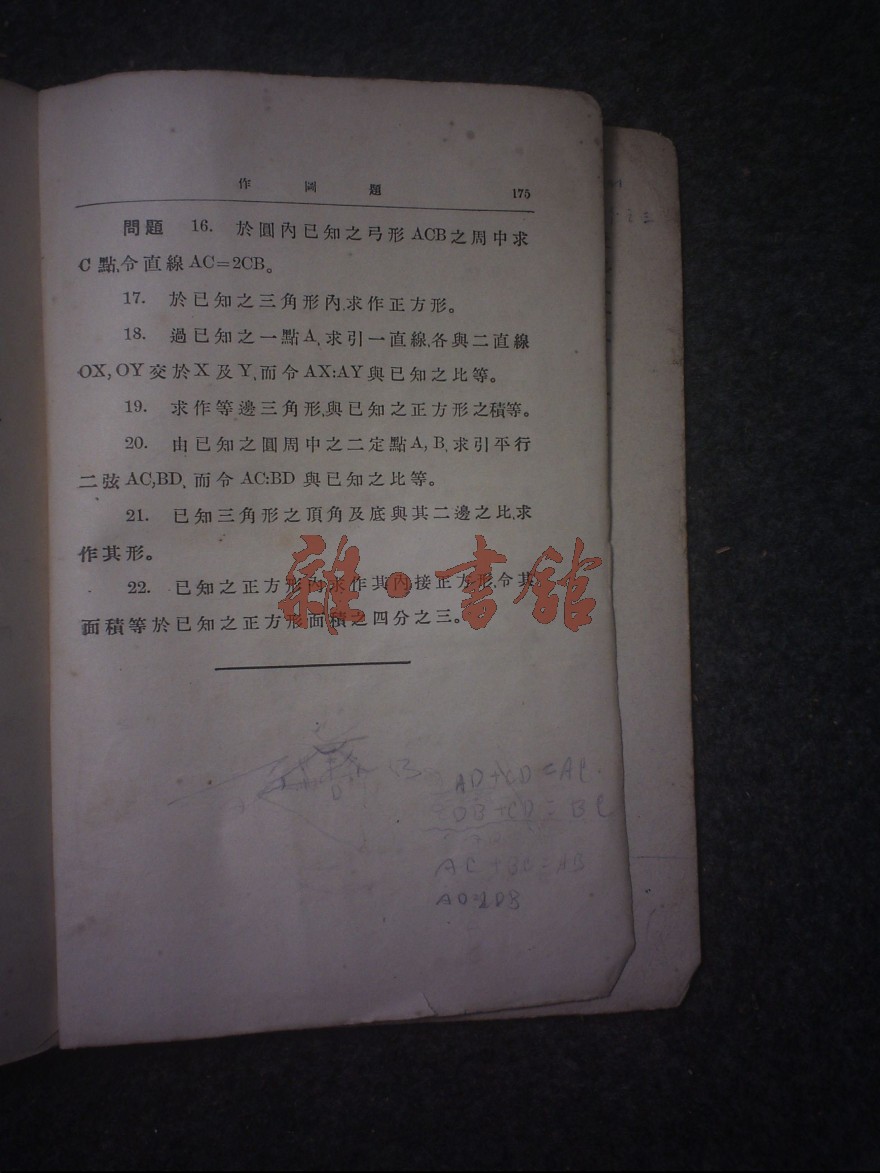 作圖題 175
問題 16. 於圓內已知之弓形 ACB 之周中求
C 點,令直線 AC=2CB。
17. 於已知之三角形內,求作正方形。
18. 過已知之一點 A, 求引一直線,各與二直線
OX, OY 交於 X 及 Y, 而令 AX:AY 與已知之比等。
19. 求作等邊三角形,與已知之正方形之積等。
20. 由已知之圓周中之二定點 A, B, 求引平行
二弦 AC,BD, 而令 AC:BD 與已知之比等。
21. 已知三角形之頂角及底與其二邊之比,求
作其形。
22. 已知之正方形內求作其內接正方形,令其
面積等於已知之正方形面積之四分之三。
雜·書館
D
AD+CD=AC
DB+CD=BC
AC+BC=AB